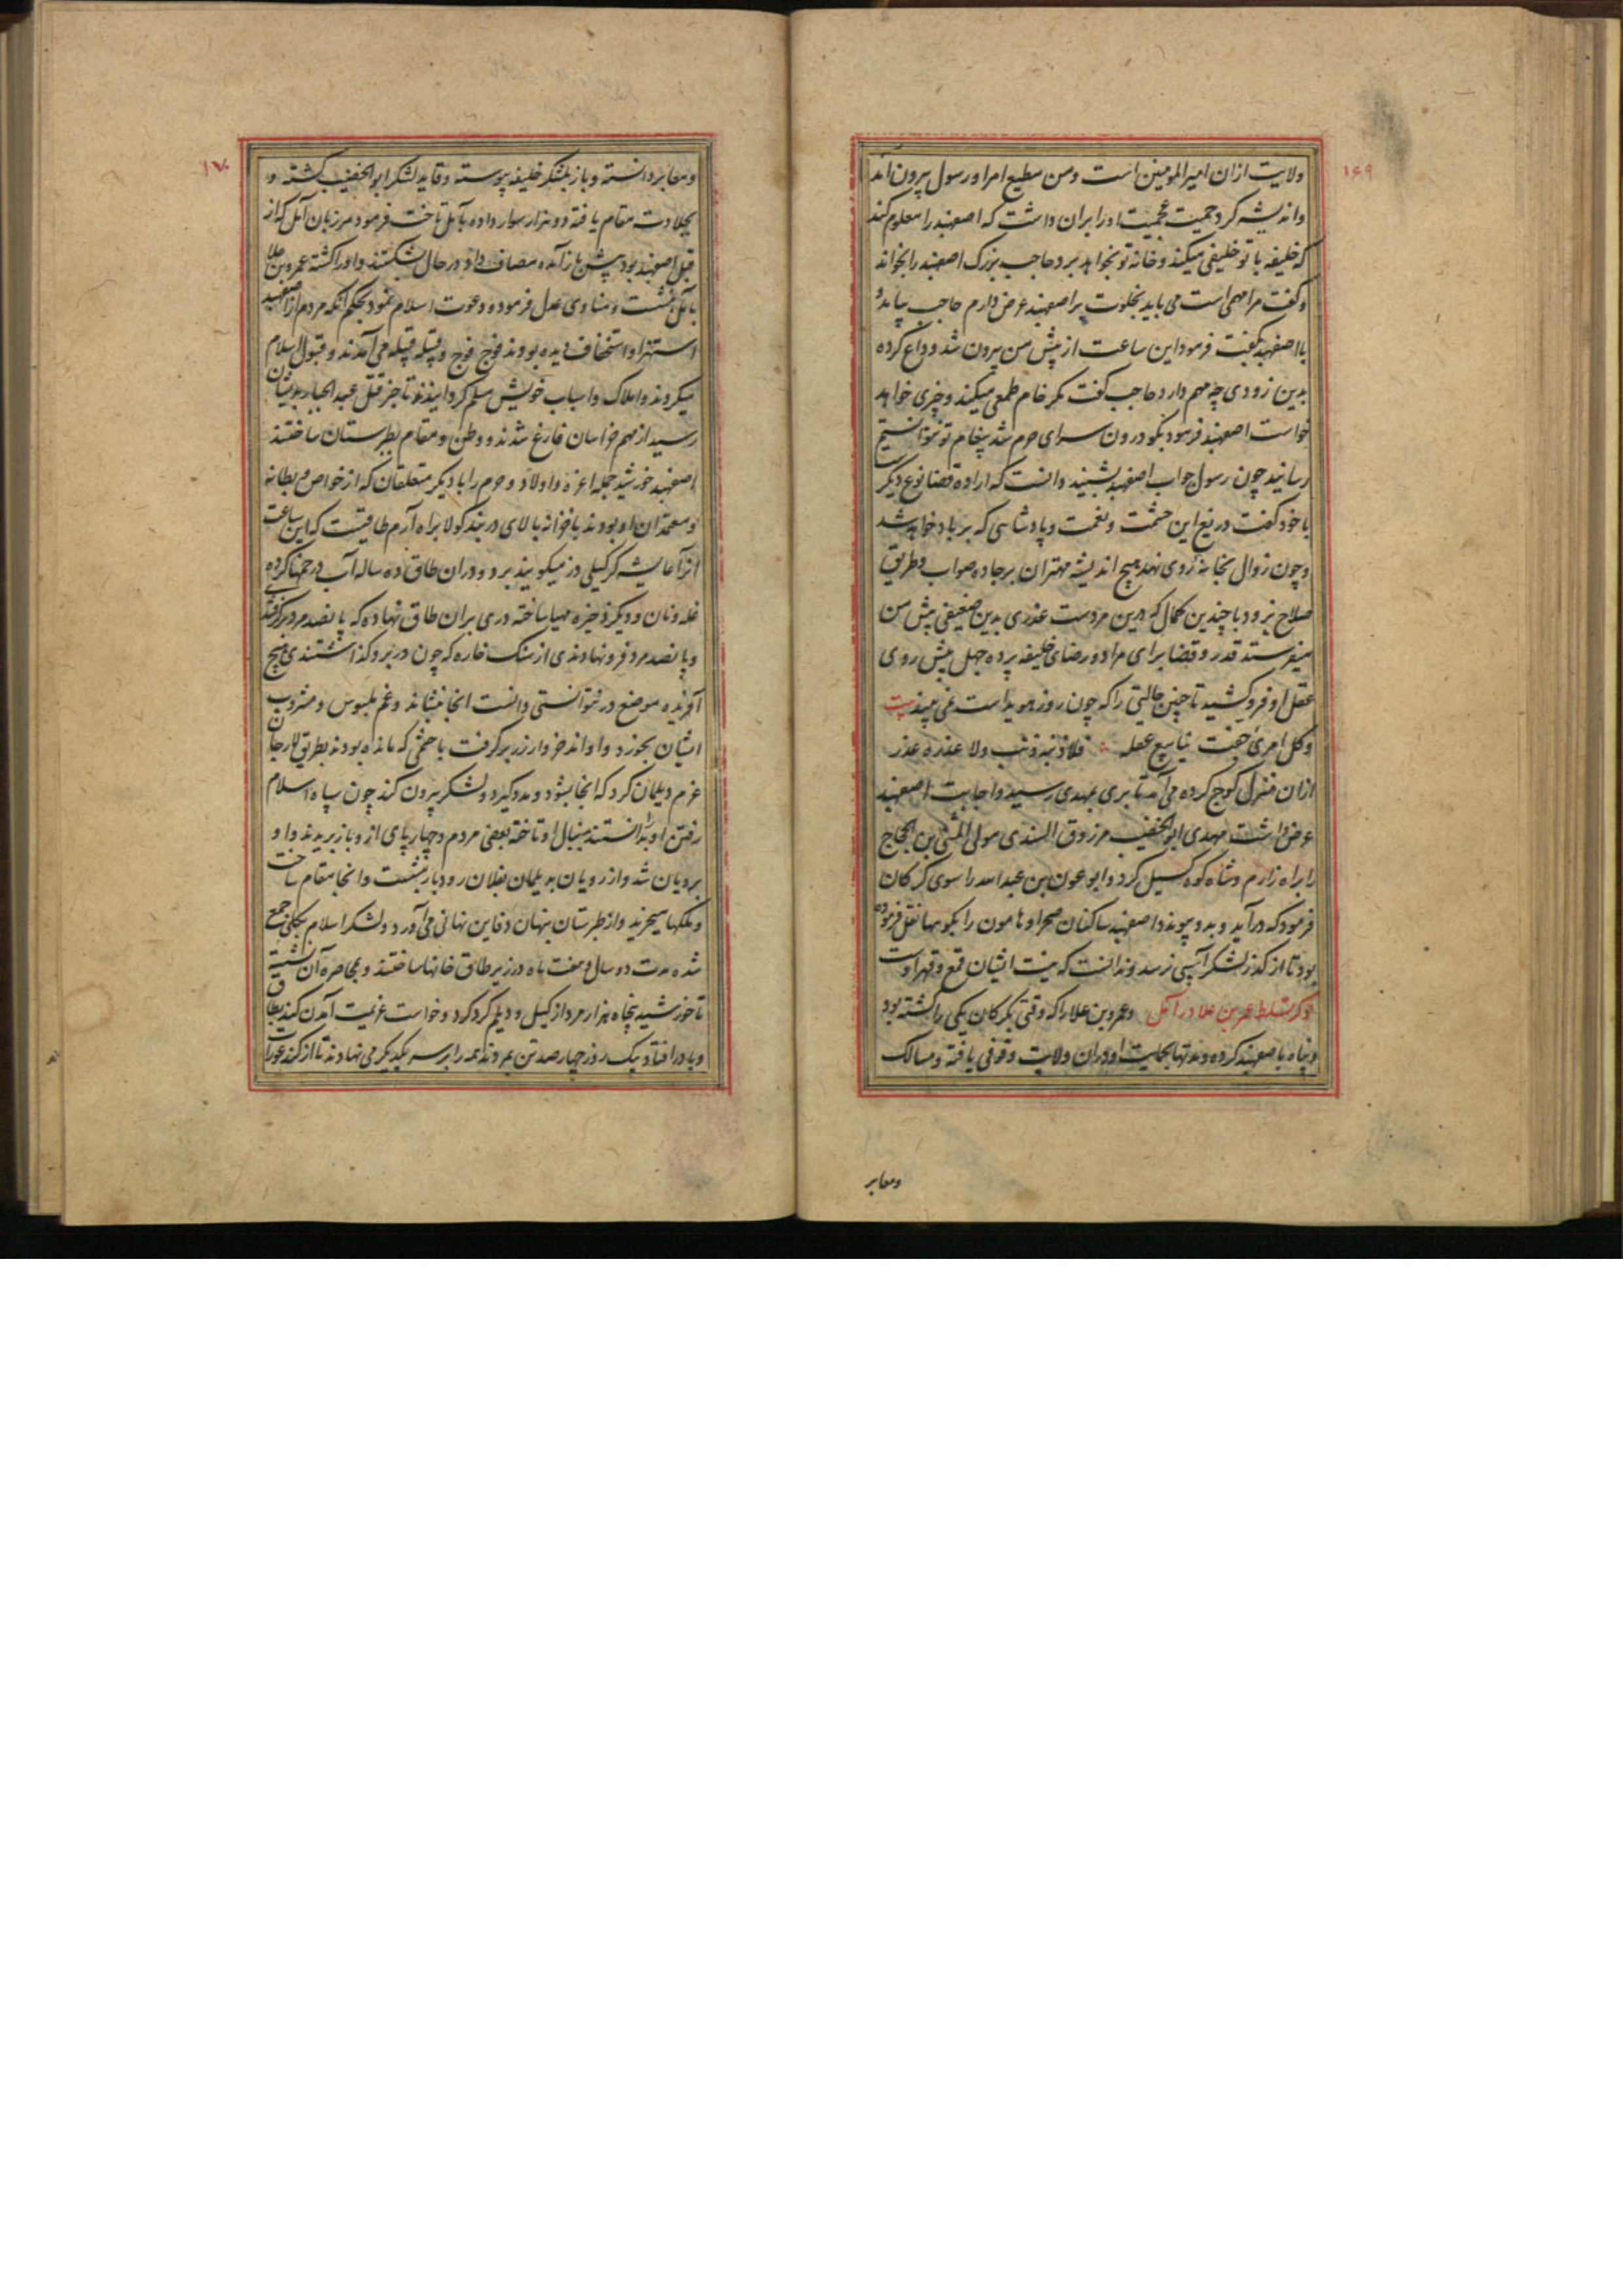 ۱۶۹
ولایت ازان امیرالمومنین است و من مطیع امر او رسول بیرون آمد
و اندیشه کرد حمیت عجمیت او را بران داشت که اصفهبد را معلوم کند
که خلیفه با تو خلیفی میکند و خانه تو بخواهد برد حاجب بزرک اصفهبد را بخواند
و کفت مرا مهمی است می باید بخلوت بر اصفهبد عرض دارم حاجب بیامد و
با اصفهبد بکفت فرمود این ساعت از پیش من بیرون شد و وداع کرده
بدین زودی چه مهم دارد حاجب کفت مکر خام طمعی میکند و چیزی خواهد
خواست اصفهبد فرمود بکو درون سرای حرم شد پیغام تو نتوانستیم
رسانید چون رسول جواب اصفهبد بشنید دانست که اراده قضا نوع دیکر
با خود کفت دریغ این حشمت و نعمت و پادشاهی که بر باد خواهد شد
و چون زوال بخانه روی نهد هیچ اندیشه مهتران بر جاده صواب و طریق
صلاح نرود با چندین کمال که درین مردست عذری بدین ضعیفی پیش من
میفرستد قدر و قضا برای مراد و رضای خلیفه پرده جهل پیش روی
عقل او فرو کشید تا چنین حالتی را که چون روز هویداست نمی بیند بیت
وکل امرئ جفت ینابیع عقله فلا ذنبه ذنب ولا عذره عذر
ازان منزل کوچ کرده می آمد تا بری بمهدی رسید و اجابت اصفهبد
عرض داشت مهدی ابوالخضیب مرزوق السندی مولی المثنی بن الحجاج
را براه زارم و شاه کوه کسیل کرد و ابوعون بن عبدالله را سوی کرکان
فرمود که درآید و بدو پیوندد اصفهبد ساکنان صحرا و هامون را بکوهها نقل فرموده
بود تا از کذر لشکر آسیبی نرسد و ندانست که نیت ایشان قمع و قهر اوست
ذکر تسلط عمر بن علا در آمل و عمرو بن علا را که وقتی بکرکان یکی را کشته بود
و پناه با صفهبد کرده و مدتها بحمایت او دران ولایت وقوفی یافته و مسالک
و معابر
۱۷۰
و معابر دانسته و باز بلشکر خلیفه پیوسته و قاید لشکر ابوالخضیب کشته و
بجلادت مقام یافته دو هزار سوار داده بآمل تاخت فرمود مرزبان آمل که از
قبل اصفهبد بود پیش باز آمده مصاف داد در حال بشکستند و او را کشته عمرو بن علا
بآمل بنشست و منادی عدل فرموده و دعوت اسلام نمود بحکم آنکه مردم از اصفهبد
استهزا و استخفاف دیده بودند فوج فوج و قبیله قبیله می آمدند و قبول اسلام
میکردند و املاک و اسباب خویش مسلم کردانیدند تا خبر قتل عبدالجبار بدیشان
رسید از مهم خراسان فارغ شدند و وطن و مقام بطبرستان ساختند
اصفهبد خورشید جمله اعزه و اولاد و حرم را با دیکر متعلقان که از خواص و بطانه
و معتمدان او بودند با خزانه بالای دربند کولا براه آرم طاقیست که این ساعت
انرا عایشه کرکیلی دز میکویند برد و دران طاق ده ساله آب در خمها کرده
غله و نان و دیکر ذخیره مهیا ساخته دری بران طاق نهاده که پانصد مرد برکرفتندی
و پانصد مرد فرو نهادندی از سنک خاره که چون در برو کذاشتندی هیچ
آفریده موضع در نتوانستی دانست انجا بنشاند و غم ملبوس و مشروب
ایشان بخورد و او اند خروار زر برکرفت با حشمی که مانده بودند بطریق لارجان
عزم دیلمان کرد که انجا بشود و مدد کیرد و لشکر بیرون کند چون سپاه اسلام
رفتن او بدانستند بدنبال او تاخته بعضی مردم و چهارپای از و باز بریدند و او
برویان شد و از رویان بدیلمان بفلان رودبار بنشست و انجا مقام ساخت
و ملکها میخرید و از طبرستان پنهان دفاین نهانی می آورد و لشکر اسلام بکلی جمع
شده مدت دو سال و هفت ماه در زیر طاق خانها ساختند و بمحاصره آن نشسته
تا خورشید پنجاه هزار مرد از کیل و دیلم کرد کرد و خواست عزیمت آمدن کند بطاق
وبا در افتاد یک روز چهارصد تن بمردند همه را بر سر یکدیکر می نهادند تا از کند عورات